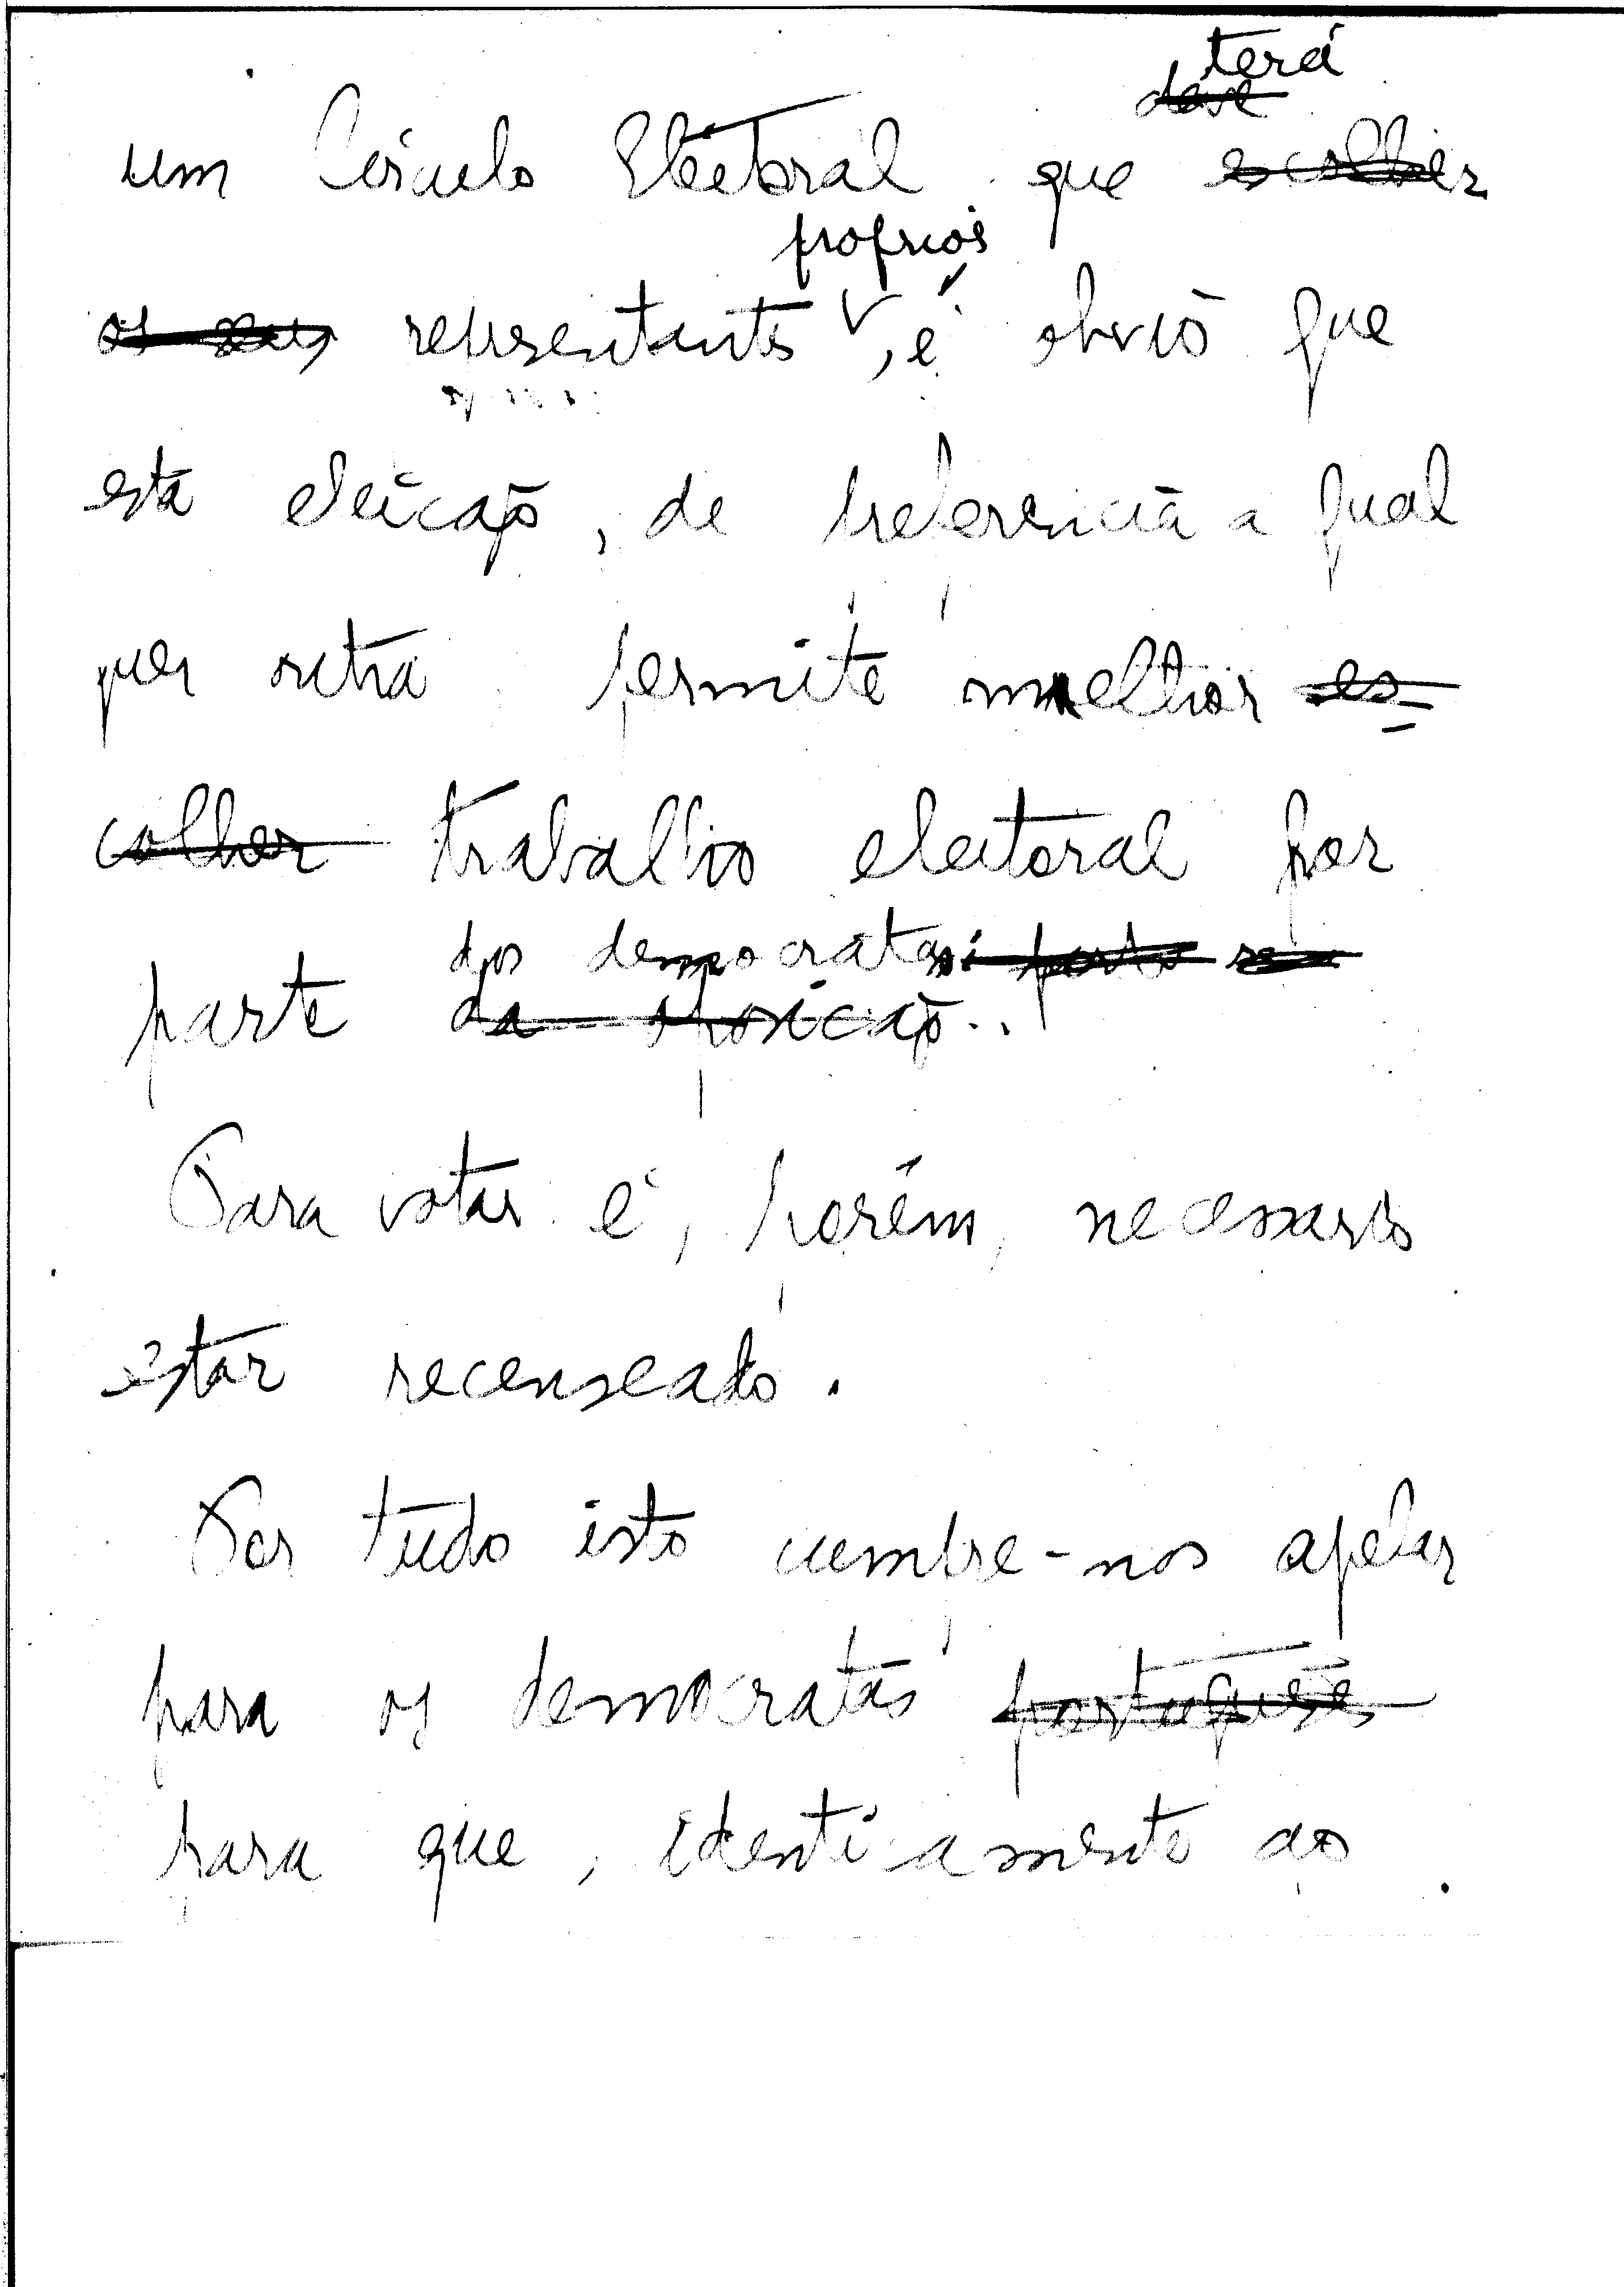 terá
deve
um Círculo Eleitoral que escolher
próprios
os seus representantes, é obvio que
esta eleição, de preferencia a qual
quer outra permite melhor es-
colher trabalho eleitoral por
dos democratas
parte da oposição..
Para votar é, porém, necessario
estar recenseado.
Por tudo isto cumpre-nos apelar
para os democratas portugueses
para que, identicamente ao